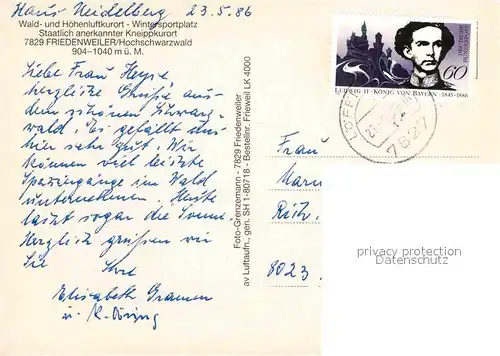 Haus Heidelberg 23.5.86
Wald- und Höhenluftkurort - Wintersportplatz
Staatlich anerkannter Kneippkurort
7829 FRIEDENWEILER/Hochschwarzwald
904–1040 m ü. M.
Liebe Frau Heyse
herzliche Grüße aus
dem schönen Schwarz-
wald. Es gefällt uns
hier sehr gut. Wir
können viel leichte
Spaziergänge im Wald
unternehmen. Heute
lacht sogar die Sonne.
Herzlich grüßen wir
Sie Ihre
Elisabeth
u.
Foto-Grenzemann - 7829 Friedenweiler
av Luftaufn., gen. SH 1-80718 - Bestellnr. Frieweil LK 4000
DEUTSCHE
BUNDESPOST
60
LUDWIG II · KÖNIG VON BAYERN · 1845-1886
LÖFF
7827
Frau
8023
privacy protection
Datenschutz